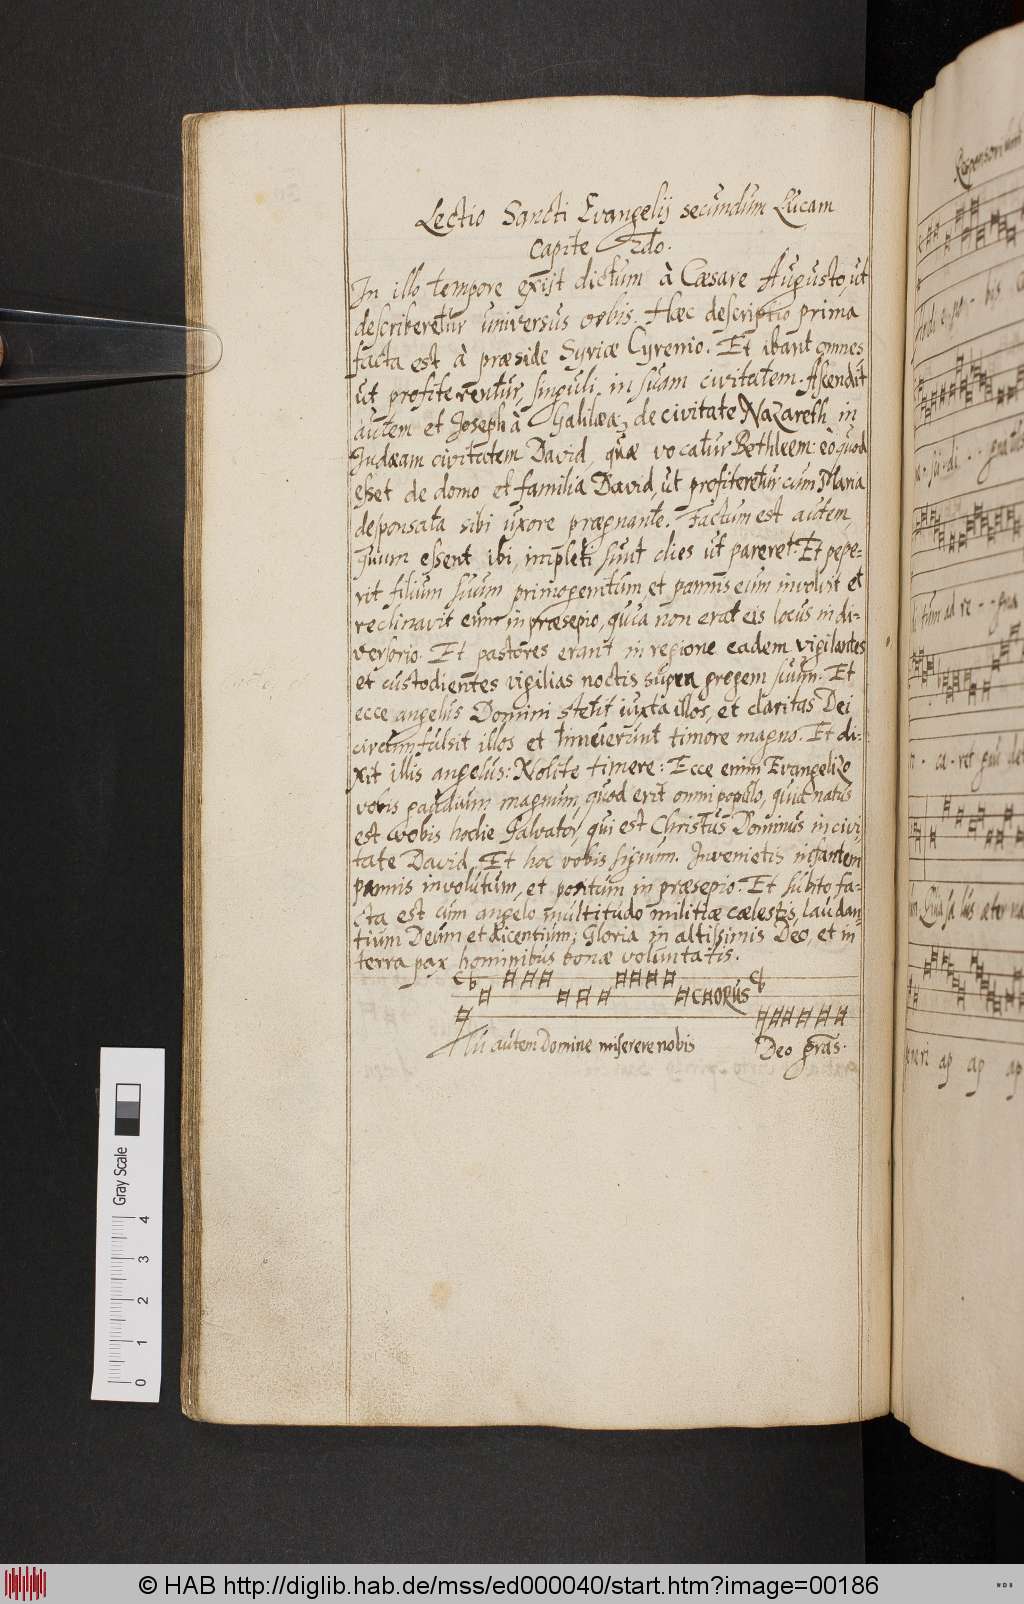 Lectio Sancti Evangelij secundum Lucam
Capite 2do.
In illo tempore exijt dictum à Cæsare Augusto, ut
describeretur universus orbis. Hæc descriptio prima
facta est à præside Syriæ Cyrenio. Et ibant omnes
ut profiterentur, singuli in suam civitatem. Ascendit
autem et Joseph à Galilæa, de civitate Nazareth in
Judæam civitatem David, quæ vocatur Bethleem: eò quod
esset de domo et familia David, ut profiteretur cum Maria
desponsata sibi uxore prægnante. Factum est autem,
quum essent ibi, impleti sunt dies ut pareret: Et pepe-
rit filium suum primogenitum, et pannis eum involvit et
reclinavit eum in præsepio, quia non erat eis locus in di-
versorio. Et pastores erant in regione eadem vigilantes
et custodientes vigilias noctis supra gregem suum. Et
ecce angelus Domini stetit iuxta illos, et claritas Dei
circumfulsit illos et timuerunt timore magno. Et di-
xit illis angelus: Nolite timere: Ecce enim Evangelizo
vobis gaudium magnum, quod erit omni populo, quia natus
est vobis hodie Salvator, qui est Christus Dominus in civi-
tate David, Et hoc vobis signum. Invenietis infantem
pannis involutum, et positum in præsepio. Et subito fa-
cta est cum angelo multitudo militiæ cælestis, laudan-
tium Deum et dicentium; Gloria in altissimis Deo, et in
terra pax hominibus bonæ voluntatis.
CHORUS
Tu autem Domine miserere nobis Deo gras.
Responsorium
Gray Scale
0 1 2 3 4
© HAB http://diglib.hab.de/mss/ed000040/start.htm?image=00186